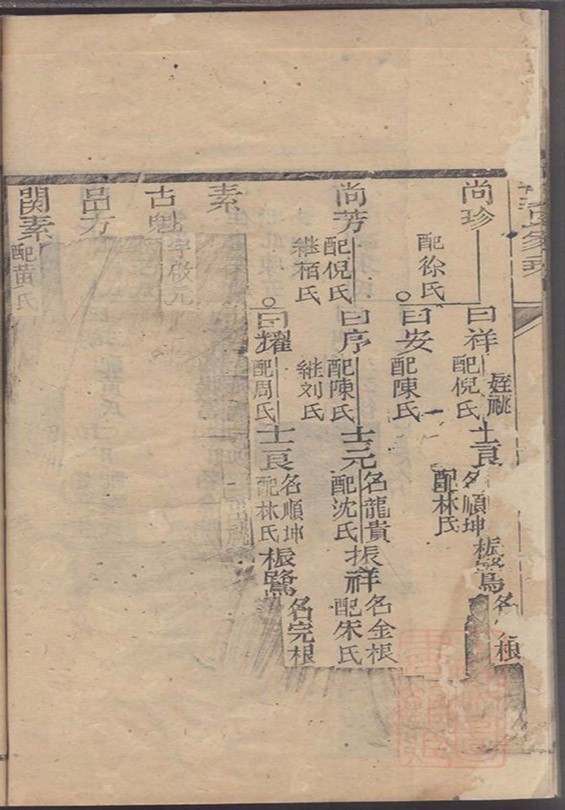 尚珍
配徐氏
曰祥
配倪氏
姪祧
士良
名順坤
配林氏
振鷺
名
根
曰安
配陳氏
尚芳
配倪氏
継栢氏
曰序
配陳氏
継刘氏
士元
名龍貴
配沈氏
振祥
名金根
配朱氏
曰耀
配周氏
士良
名順坤
配林氏
振鷺
名完根
素
古魁
字啟元
呂方
関素
配黄氏